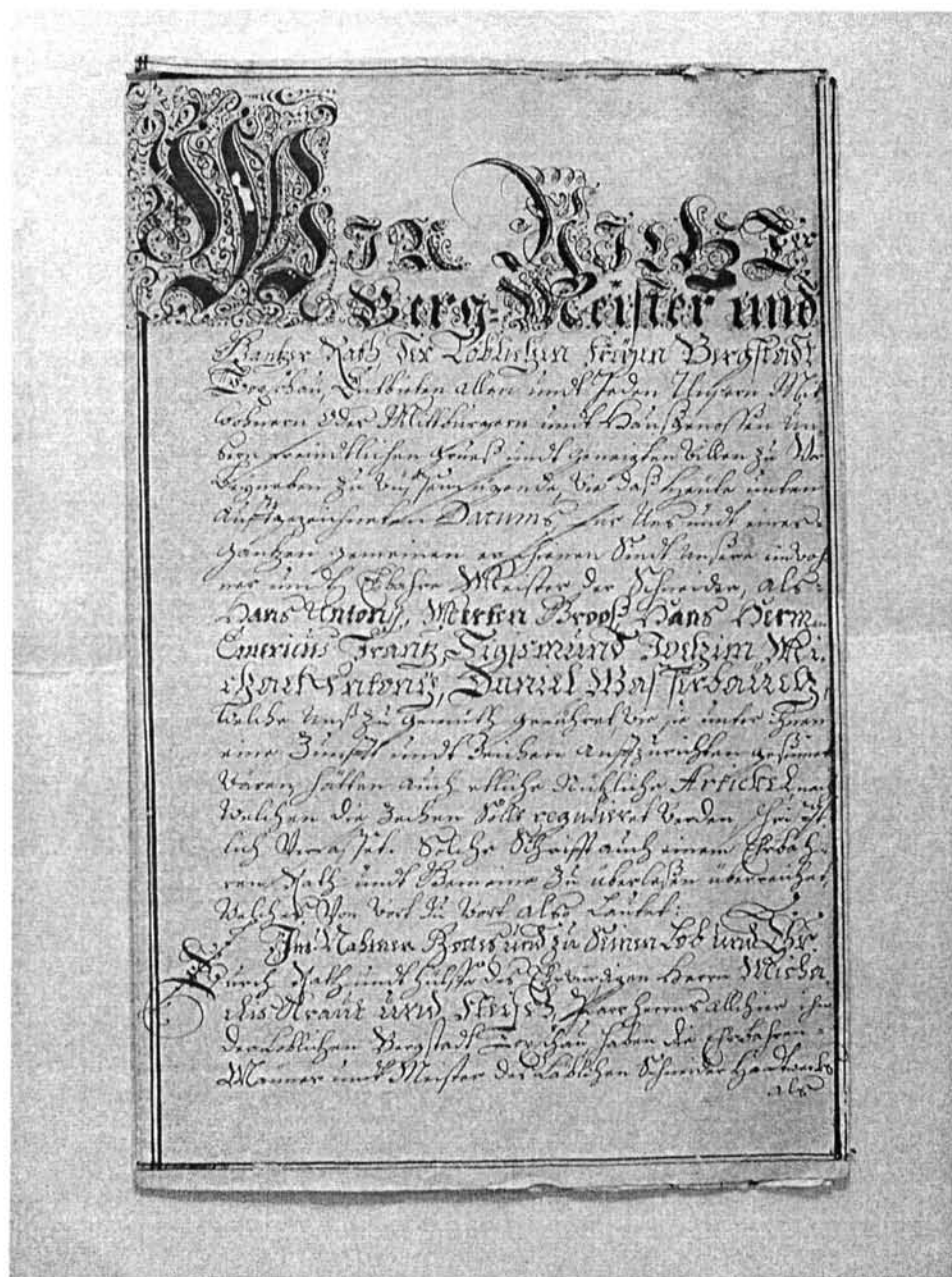 WIR RICHTer
Berg-Meister und
Gantzer Rath der Löblichen freyen Bergstadt
Topschau, Entbieten allen undt Jeden Unsern Mit
wohnern oder Mittbürgern undt Haußgenossen Un
sern freindtlichen Grueß undt geneigten Willen zu
Begneben zu wie daß Heute unten
Auffgezeichneten Datums für Uns undt einer
gantzen gemeinen erschienen Sindt Unsere inwoh
ner undt Ehbahre Meister der Schneider, Als
Hans Antony, Merten Brooß, Hans Herm
Emericus Frantz, Sigismund Jochim, Mi:
chael Antony, Daniel
Welche Unß zu gemuth geführet wie sie unter ihnen
eine Zunfft undt Zeichen auffzurichten gesinnet
wären hätten auch etliche Nützliche Artickel nach
Welchen die Zechen Solle reguliret werden Schrifft
lich Verfasset. Solche Schrifft auch einem Ehrbah
ren Rath undt Gemeine zu überlesen überreichet,
Welches Von wort zu wort also Lautet:
Im Nahmen Gottes und zu Seinen Lob und Ehr
Durch Rath undt Hülffe des Ehrwirdigen Herrn Micha
elis Kraut und Pfarrherrns Allhier ihn
der Löblichen Bergstadt Topschau haben die Ehrbahren
Männer undt Meister des Löblichen Schneider Handtwercks
als